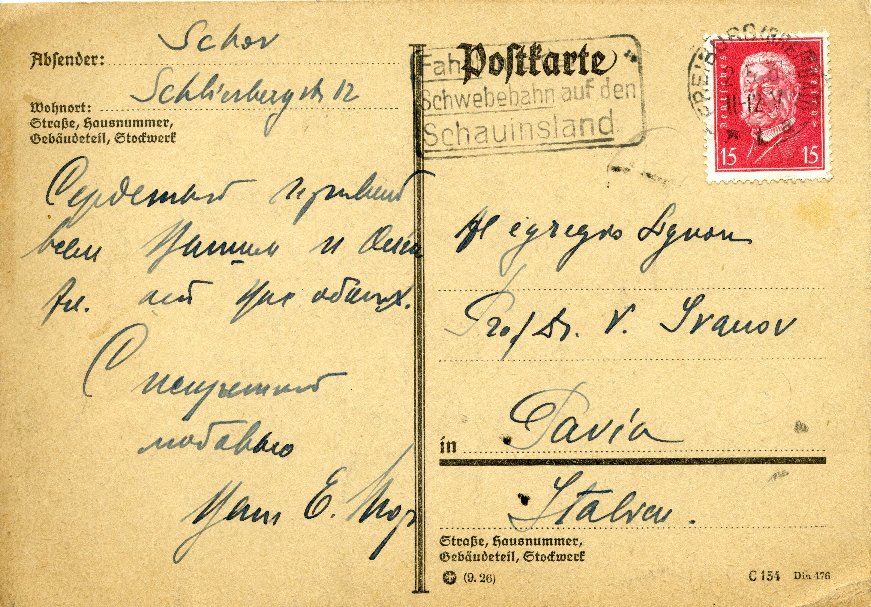 Absender: Schor
Schlierbergstr 12
Wohnort:
Straße, Hausnummer,
Gebäudeteil, Stockwerk
Сердечный привет
всем Вашим и
от нас обоих.
С искренней
любовью
Ваш Е. Шор
Postkarte
Schwebebahn auf den
Schauinsland
FREIBURG
11-12
Deutsches
15 15
Al egregio Signor
Prof Dr. V. Ivanov
in Pavia
Italien.
Straße, Hausnummer,
Gebäudeteil, Stockwerk
(9. 26)
C 154 Din 476